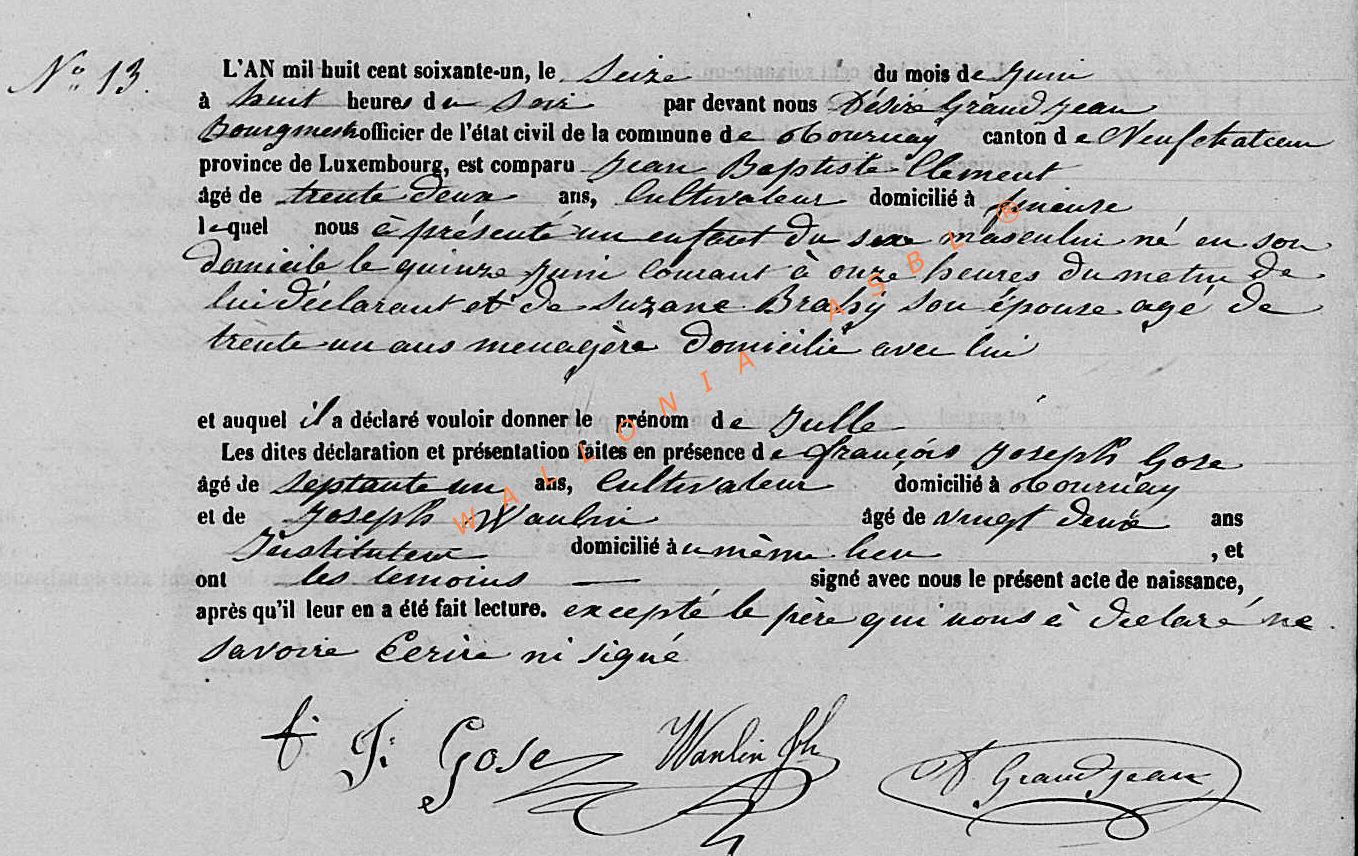 N° 13.
L'AN mil huit cent soixante-un, le seize du mois de juin
à huit heures du soir par devant nous Désiré Grandjean
Bourgmestre officier de l'état civil de la commune de Tournay canton de Neufchateau
province de Luxembourg, est comparu Jean Baptiste Clément
âgé de trente deux ans, Cultivateur domicilié à
lequel nous à présenté un enfant du sexe masculin né en son
domicile le quinze juin courant à onze heures du matin de
lui déclarant et de Suzane Brahy son épouse agé de
trente un ans menagère domicilié avec lui
et auquel il a déclaré vouloir donner le prénom de Julle
Les dites déclaration et présentation faites en présence de françois Joseph Gose
âgé de septante un ans, Cultivateur domicilié à Tournay
et de Joseph Wanlin âgé de vingt deux ans
Instituteur domicilié à même lieu , et
ont les temoins — signé avec nous le présent acte de naissance,
après qu'il leur en a été fait lecture. excepté le père qui nous à déclaré ne
savoire Ecrire ni signé
f. J. Gose Wanlin Jph D Grandjean
WALLONIA ASBL ®